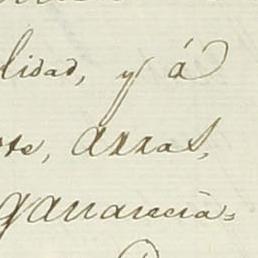 lidad, y á
te, arras,
ganancia=